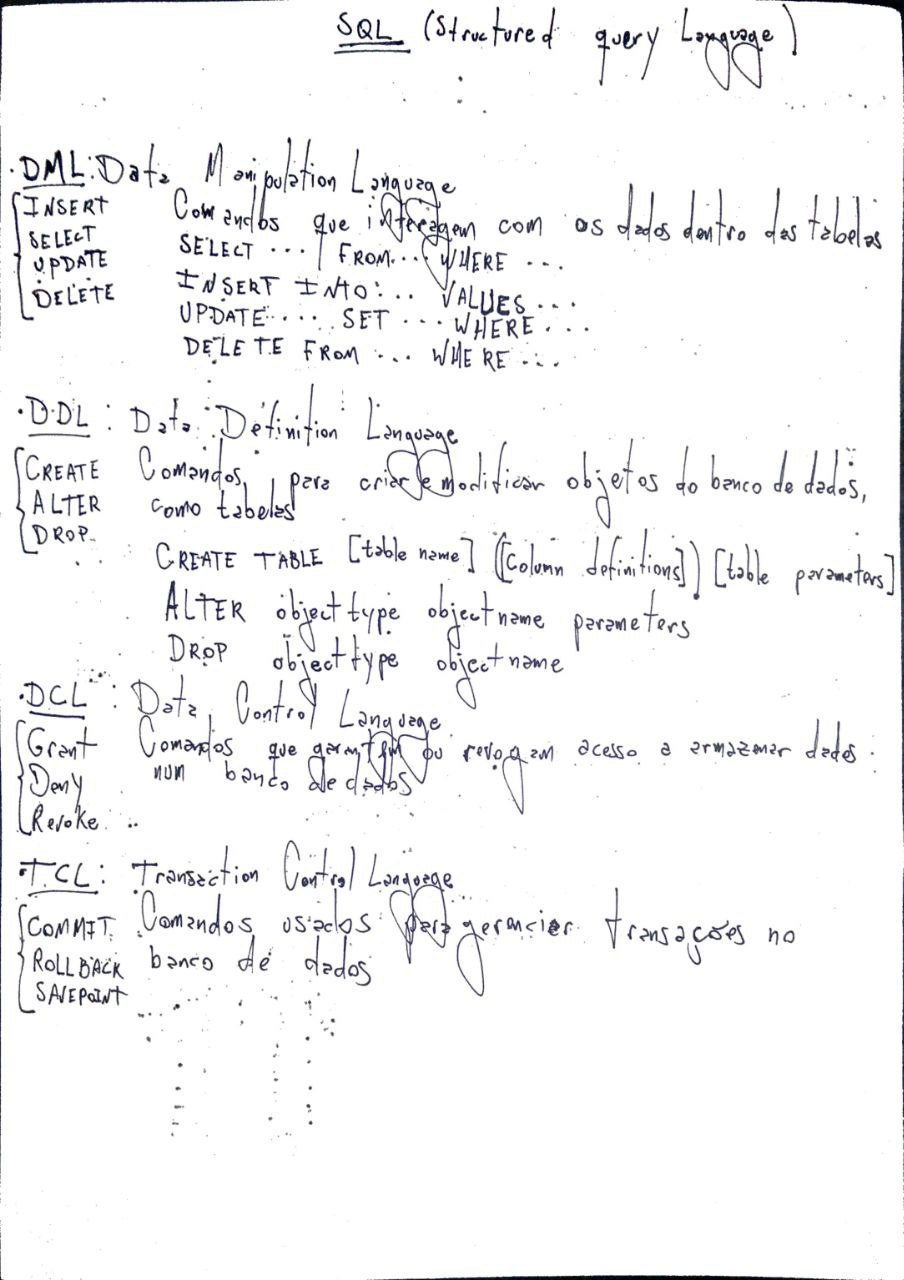 SQL (Structured query Language)
· DML: Data Manipulation Language
INSERT Comandos que interagem com os dados dentro das tabelas
SELECT SELECT ... FROM... WHERE ...
UPDATE INSERT INTO... VALUES ...
DELETE UPDATE ... SET ... WHERE ...
DELETE FROM ... WHERE ...
· DDL: Data Definition Language
CREATE Comandos para criar e modificar objetos do banco de dados,
ALTER como tabelas
DROP
CREATE TABLE [table name] ([column definitions]) [table parameters]
ALTER objecttype objectname parameters
DROP objecttype objectname
· DCL: Data Control Language
Grant Comandos que garantem ou revogam acesso a armazenar dados
Deny num banco de dados
Revoke
· TCL: Transaction Control Language
COMMIT Comandos usados para gerenciar transações no
ROLLBACK banco de dados
SAVEPOINT